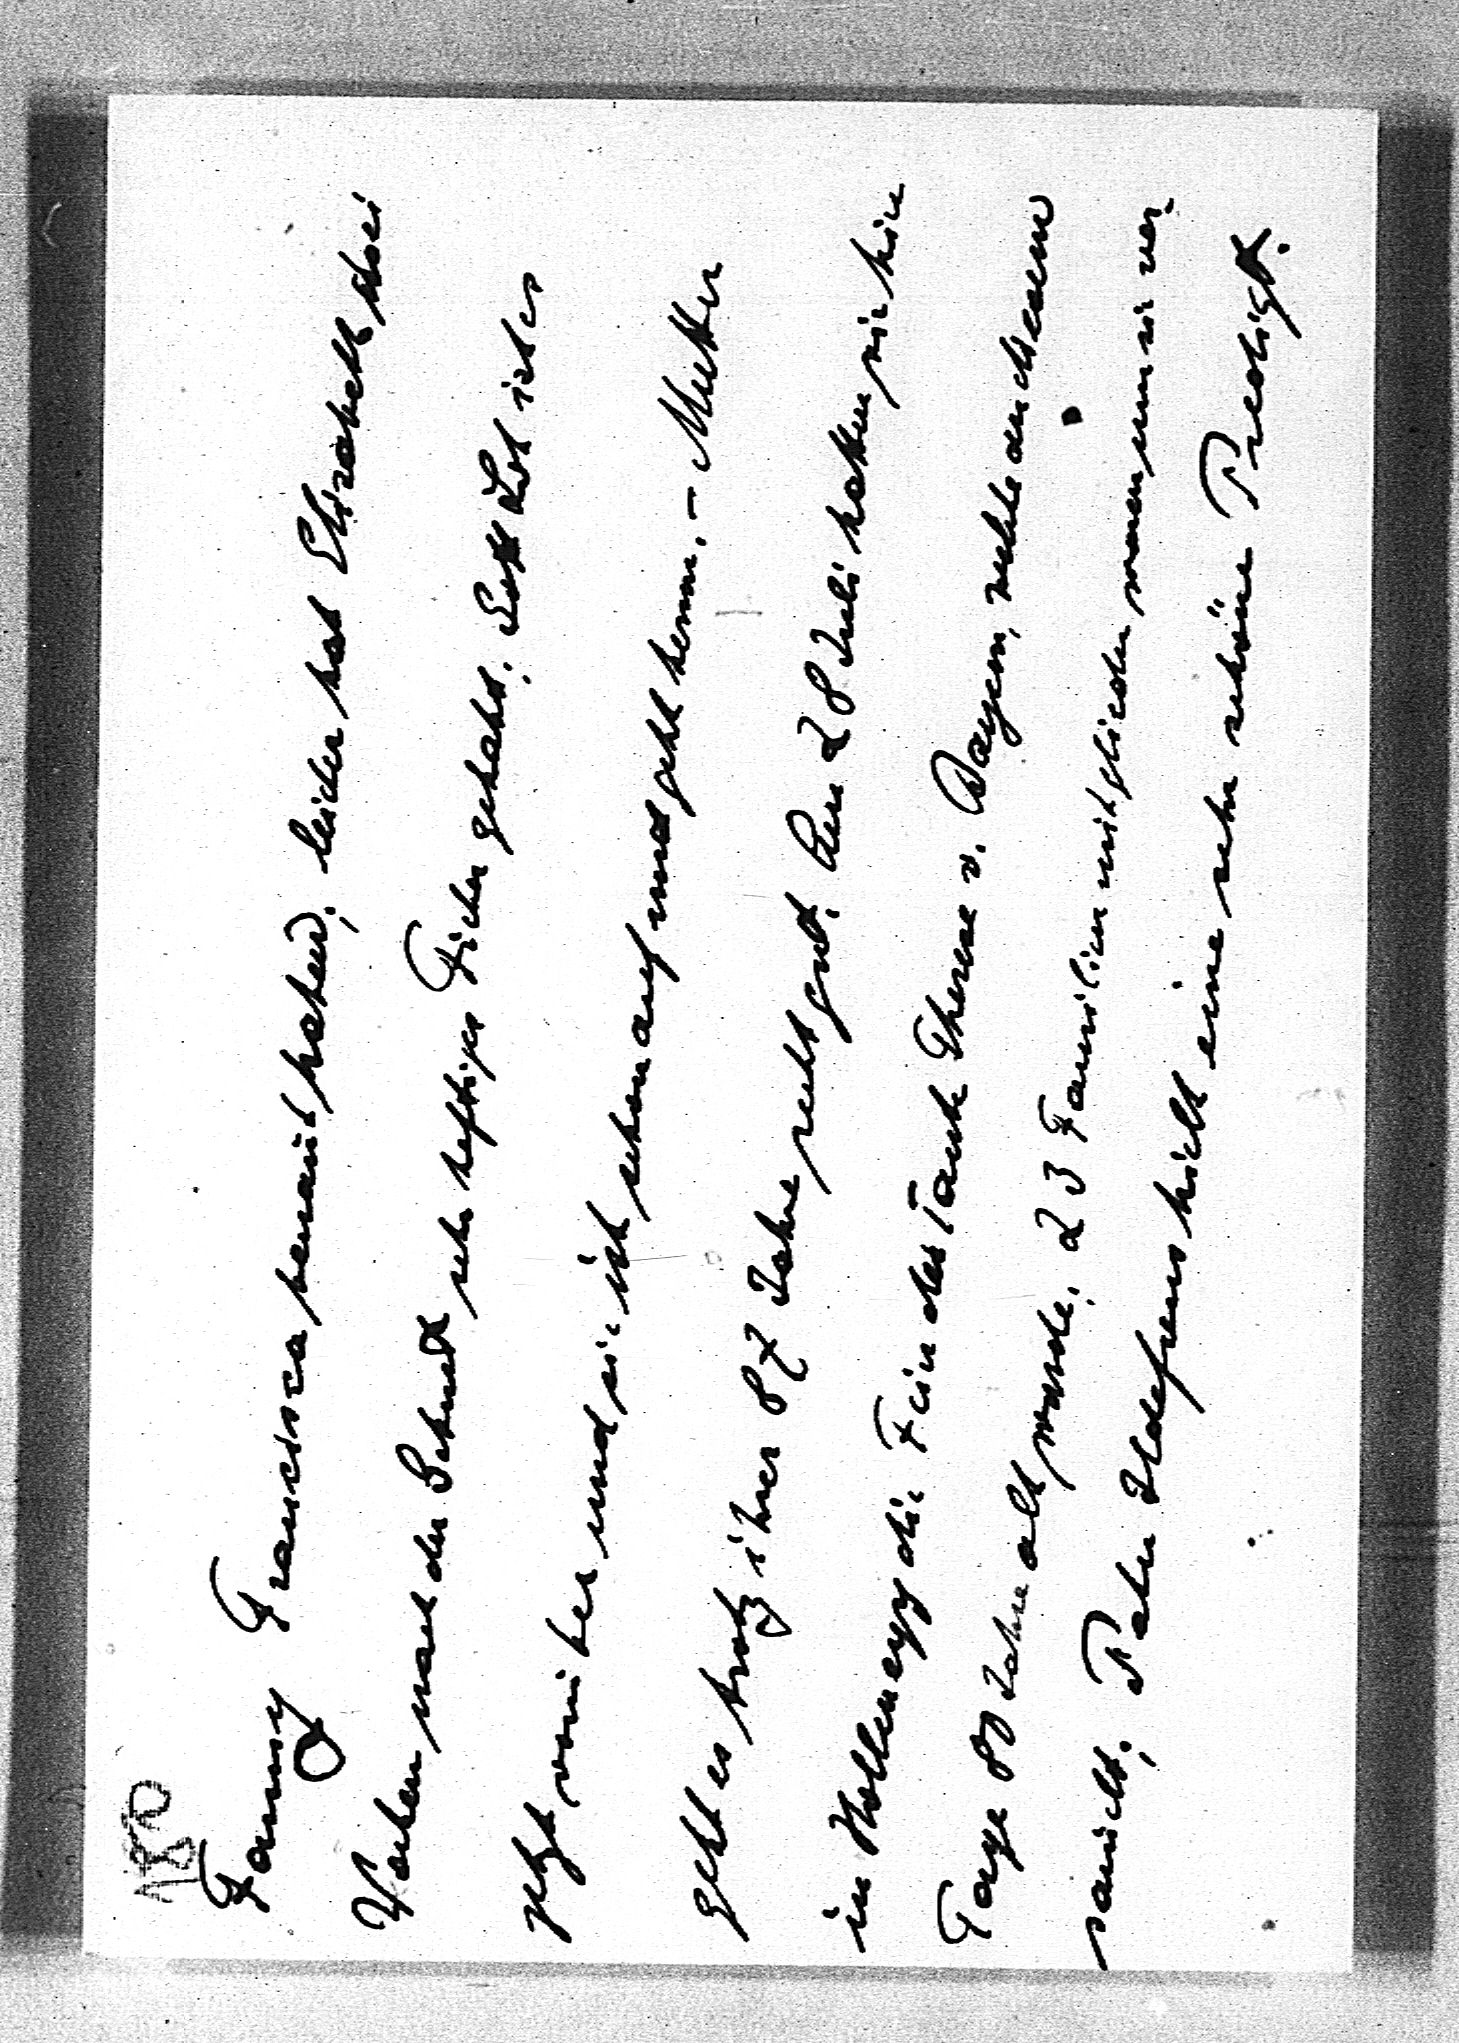 180
Fanny Francisca genannt haben; leider hat Elisabeth drei
Wochen nach der Geburt sehr heftiges Fieber gehabt; Gott Lob ist es
jetzt vorüber und sie ist schon auf und geht herum. – Mutter
geht es trotz ihrer 87 Jahre recht gut. Am 28 Juli hatten wir hier
in Hollenegg die Feier des Tante Therese v. Bayern, welche an diesem
Tage 80 Jahre alt wurde; 23 Familienmitglieder waren um sie ver-
samelt; Pater Ildefons hielt eine sehr schöne Predigt.